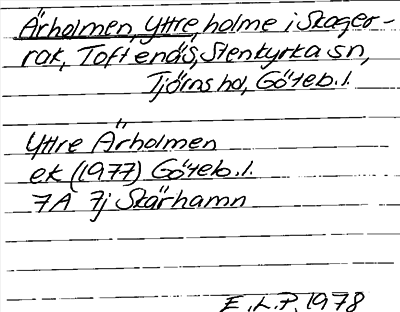 Ärholmen, Yttre, holme i Skager-
rak, Toftenäs, Stenkyrka sn,
Tjörns hd, Göteb. l.
Yttre Ärholmen
ek (1977) Göteb. l.
7A 7j Skärhamn
E.L.P. 1978